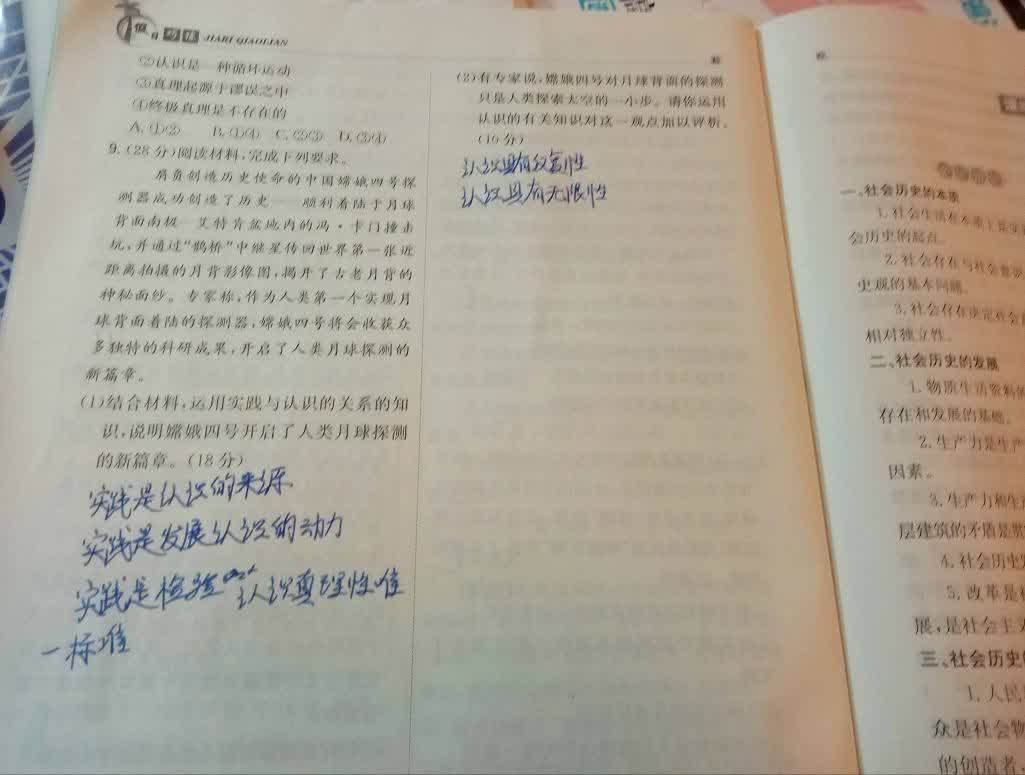 假日巧练 JIARI QIAOLIAN
②认识是一种循环运动
③真理起源于谬误之中
④终极真理是不存在的
A.①② B.①④ C.②③ D.③④
9.(28分)阅读材料,完成下列要求。
肩负创造历史使命的中国嫦娥四号探
测器成功创造了历史——顺利着陆于月球
背面南极—艾特肯盆地内的冯·卡门撞击
坑,并通过“鹊桥”中继星传回世界第一张近
距离拍摄的月背影像图,揭开了古老月背的
神秘面纱。专家称,作为人类第一个实现月
球背面着陆的探测器,嫦娥四号将会收获众
多独特的科研成果,开启了人类月球探测的
新篇章。
(1)结合材料,运用实践与认识的关系的知
识,说明嫦娥四号开启了人类月球探测
的新篇章。(18分)
实践是认识的来源
实践是发展认识的动力
实践是检验认识真理性唯
一标准
(2)有专家说,嫦娥四号对月球背面的探测
只是人类探索太空的一小步。请你运用
认识的有关知识对这一观点加以评析。
(10分)
认识具有反复性
认识具有无限性
一、社会历史的本质
1.社会生活在本质上是实
会历史的起点。
2.社会存在与社会意识
史观的基本问题。
3.社会存在决定社会
相对独立性。
二、社会历史的发展
1.物质生活资料的
存在和发展的基础。
2.生产力是生产
因素。
3.生产力和生产
层建筑的矛盾是
4.社会历史发
5.改革是
展,是社会主义
三、社会历史的
1.人民
众是社会物
的创造者